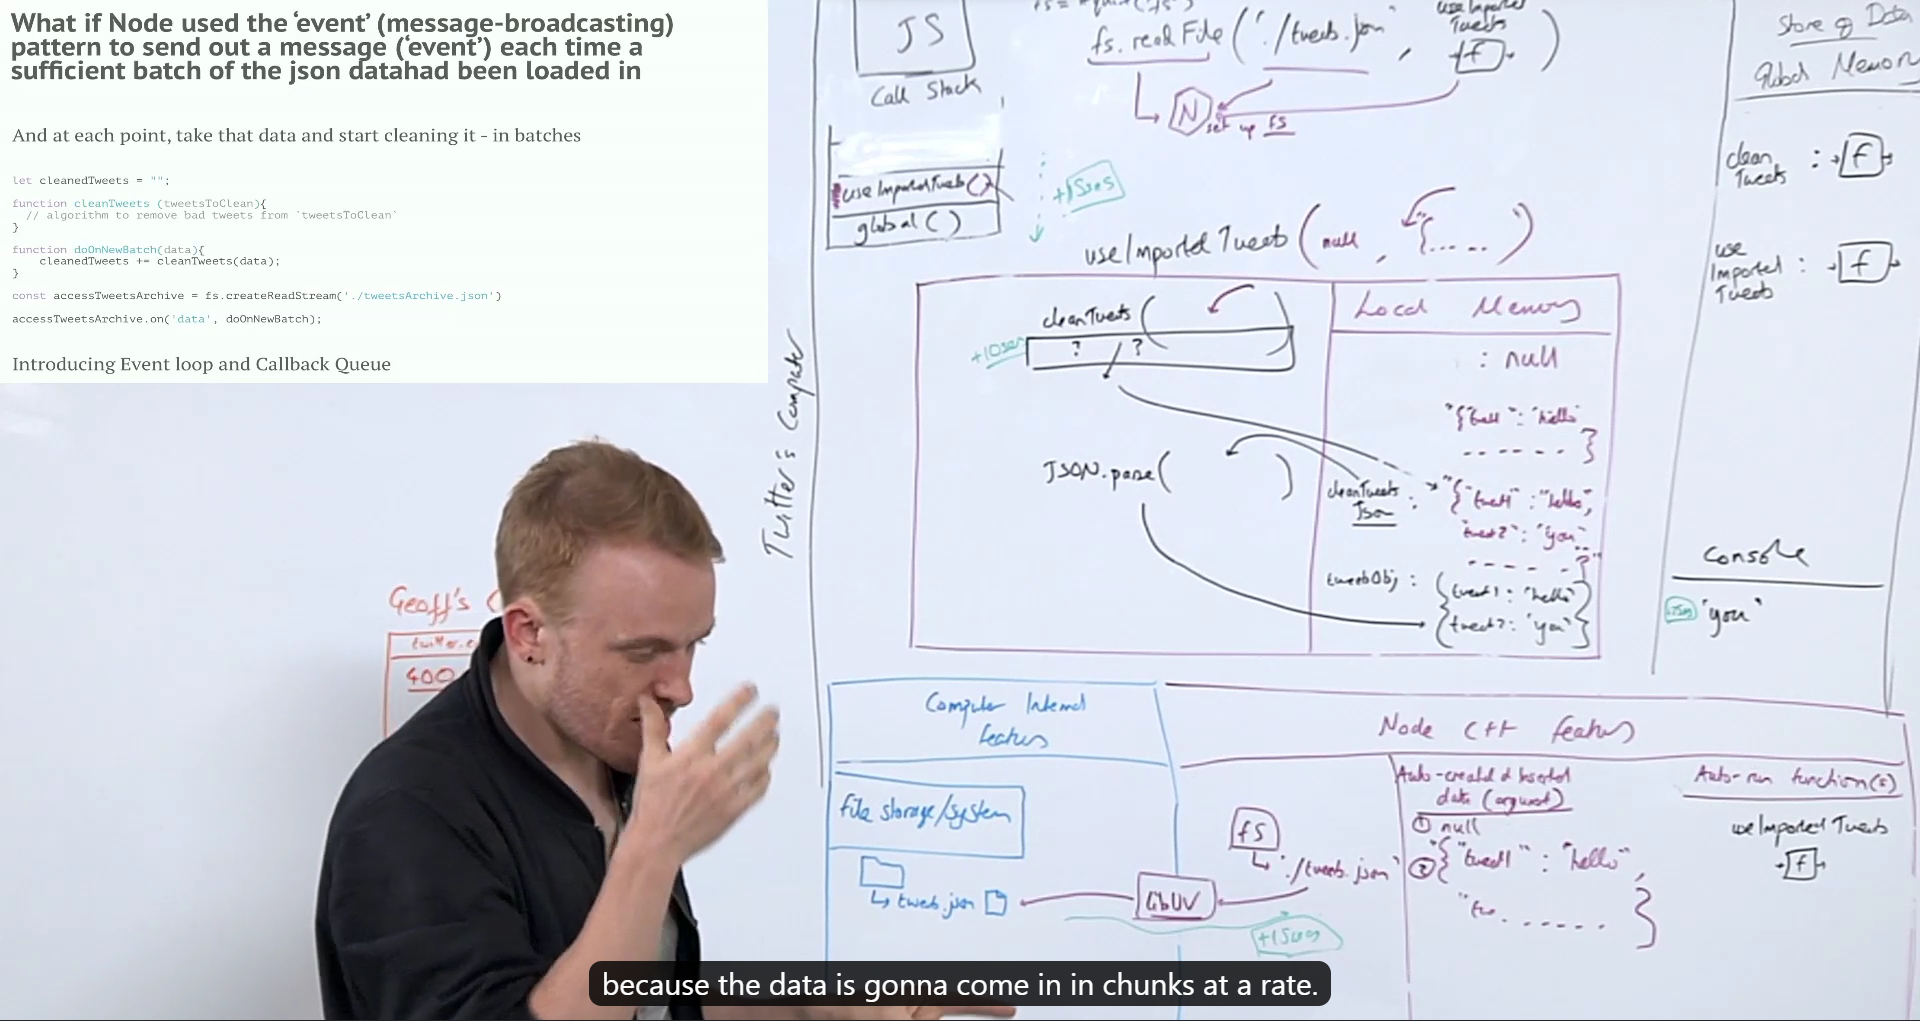 What if Node used the ‘event’ (message-broadcasting)
pattern to send out a message (‘event’) each time a
sufficient batch of the json datahad been loaded in
And at each point, take that data and start cleaning it - in batches
let cleanedTweets = "";
function cleanTweets (tweetsToClean){
// algorithm to remove bad tweets from `tweetsToClean`
}
function doOnNewBatch(data){
cleanedTweets += cleanTweets(data);
}
const accessTweetsArchive = fs.createReadStream('./tweetsArchive.json')
accessTweetsArchive.on('data', doOnNewBatch);
Introducing Event loop and Callback Queue
JS
Call Stack
useImportedTweets()
global()
fs.readFile('./tweets.json', f)
N
set up fs
useImported Tweets (null, "{.....")
cleanTweets ( )
? ?
JSON.parse( )
Local Memory
: null
"{"tweet1": "hello"
- - - - - - }
cleanTweets
Json :
"{"tweet1": "hello",
"tweet2": "you"
- - - - - }"
tweetsObj :
{tweet1: "hello"
tweet2: "you"}
Store of Data
Global Memory
clean
Tweets : f
use
Imported : f
Tweets
Console
"you"
Twitter's Computer
Geoff's
400
Computer Internal
features
file storage/system
tweets.json
Node C++ features
fs
'./tweets.json'
libUV
data (argument)
① null
② "{"tweet1" : "hello",
Auto-run function(s)
useImported Tweets
f
because the data is gonna come in in chunks at a rate.